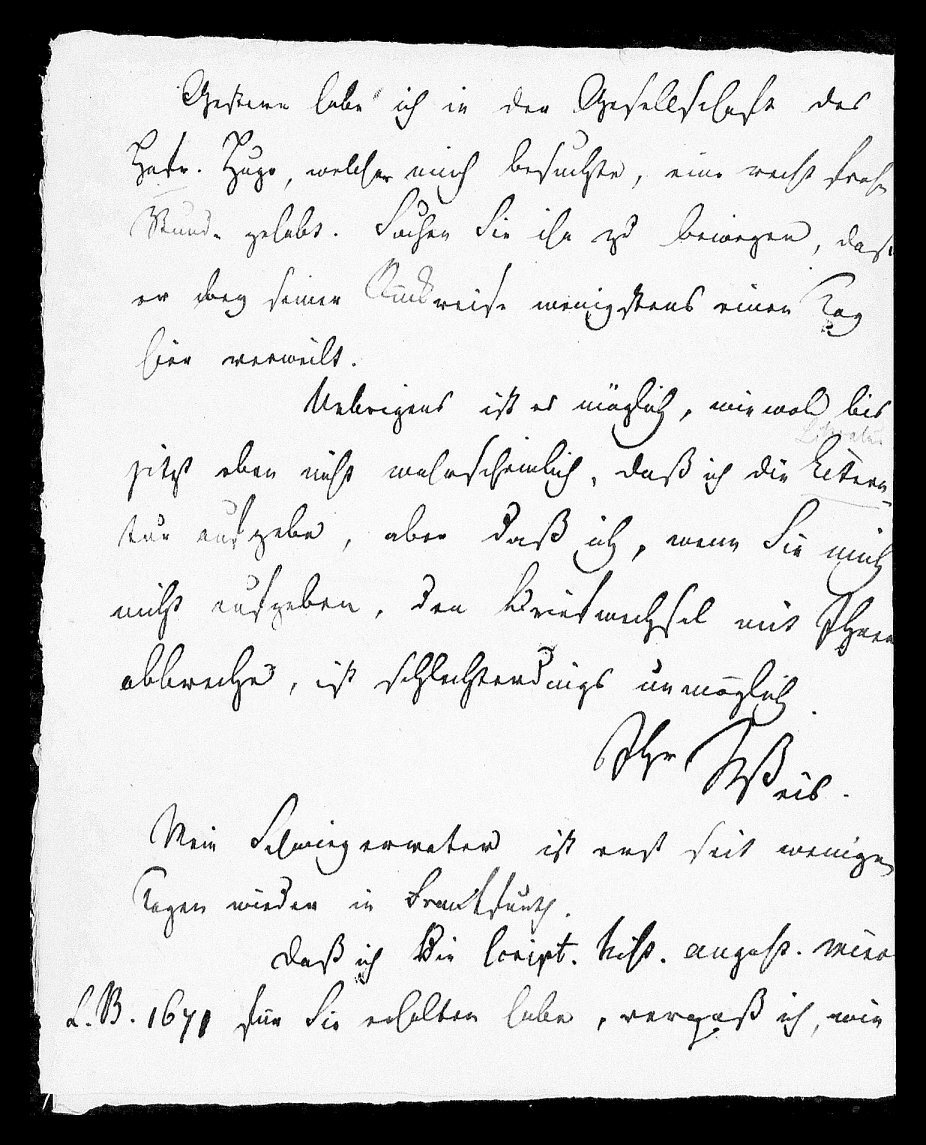 Gestern habe ich in der Gesellschaft des
Hofr. Hugo, welcher mich besuchte, eine recht frohe
Stunde gehabt. Suchen Sie ihn zu bewegen, daß
er bey seiner Rückreise wenigstens einen Tag
hier verweilt.
Uebrigens ist es möglich, wiewol bis
jetzt eben nicht wahrscheinlich, daß ich die Litera-
tur aufgebe, aber daß ich, wenn Sie mich
nicht aufgeben, den Briefwechsel mit Ihnen
abbreche, ist schlechterdings unmöglich.
Ihr Weis.
Mein Schwiegervater ist erst seit wenigen
Tagen wieder in Frankfurth.
Daß ich die script. hist. august.
L. B. 1671 für Sie erhalten habe, vergaß ich, wie